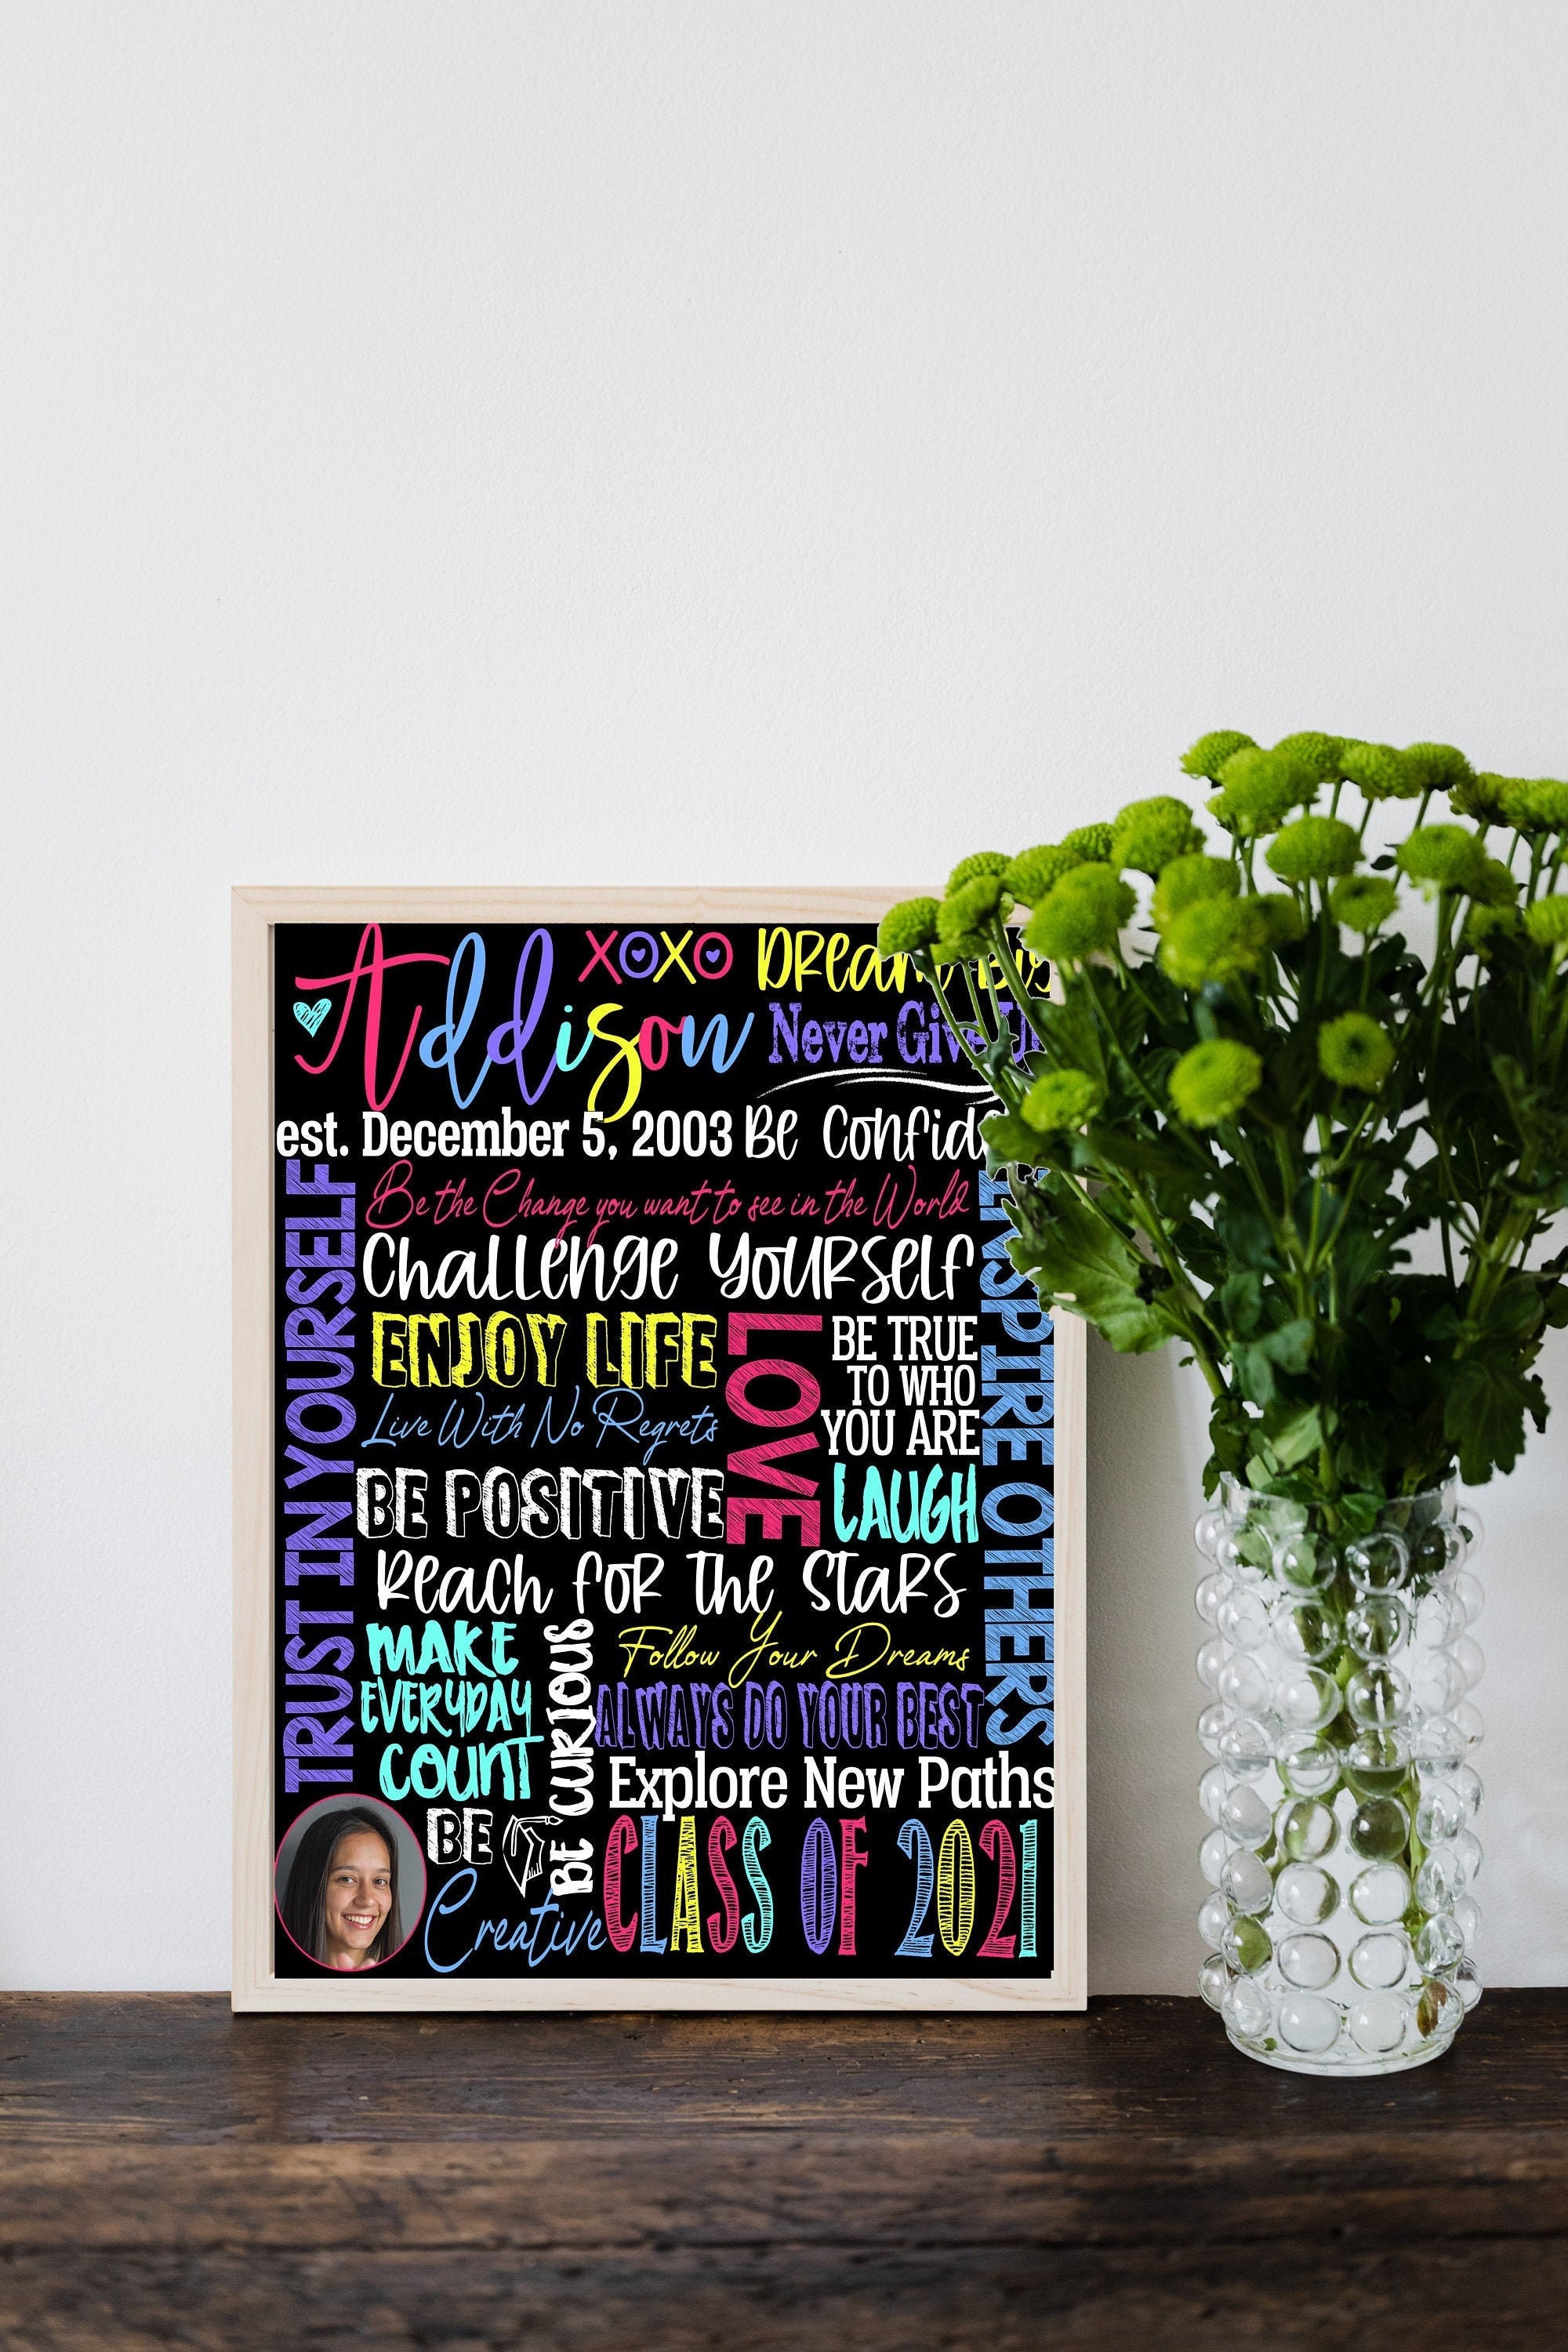 Addison
XOXO
Never Give
est. December 5, 2003
Be
Be the Change you want to see in the World
Challenge Yourself
TRUST IN YOURSELF
ENJOY LIFE
LOVE
BE TRUE
TO WHO
YOU ARE
INSPIRE OTHERS
Live With No Regrets
BE POSITIVE
LAUGH
Reach for the Stars
MAKE
EVERYDAY
COUNT
BE CURIOUS
Follow Your Dreams
ALWAYS DO YOUR BEST
Explore New Paths
BE
Creative
CLASS OF 2021